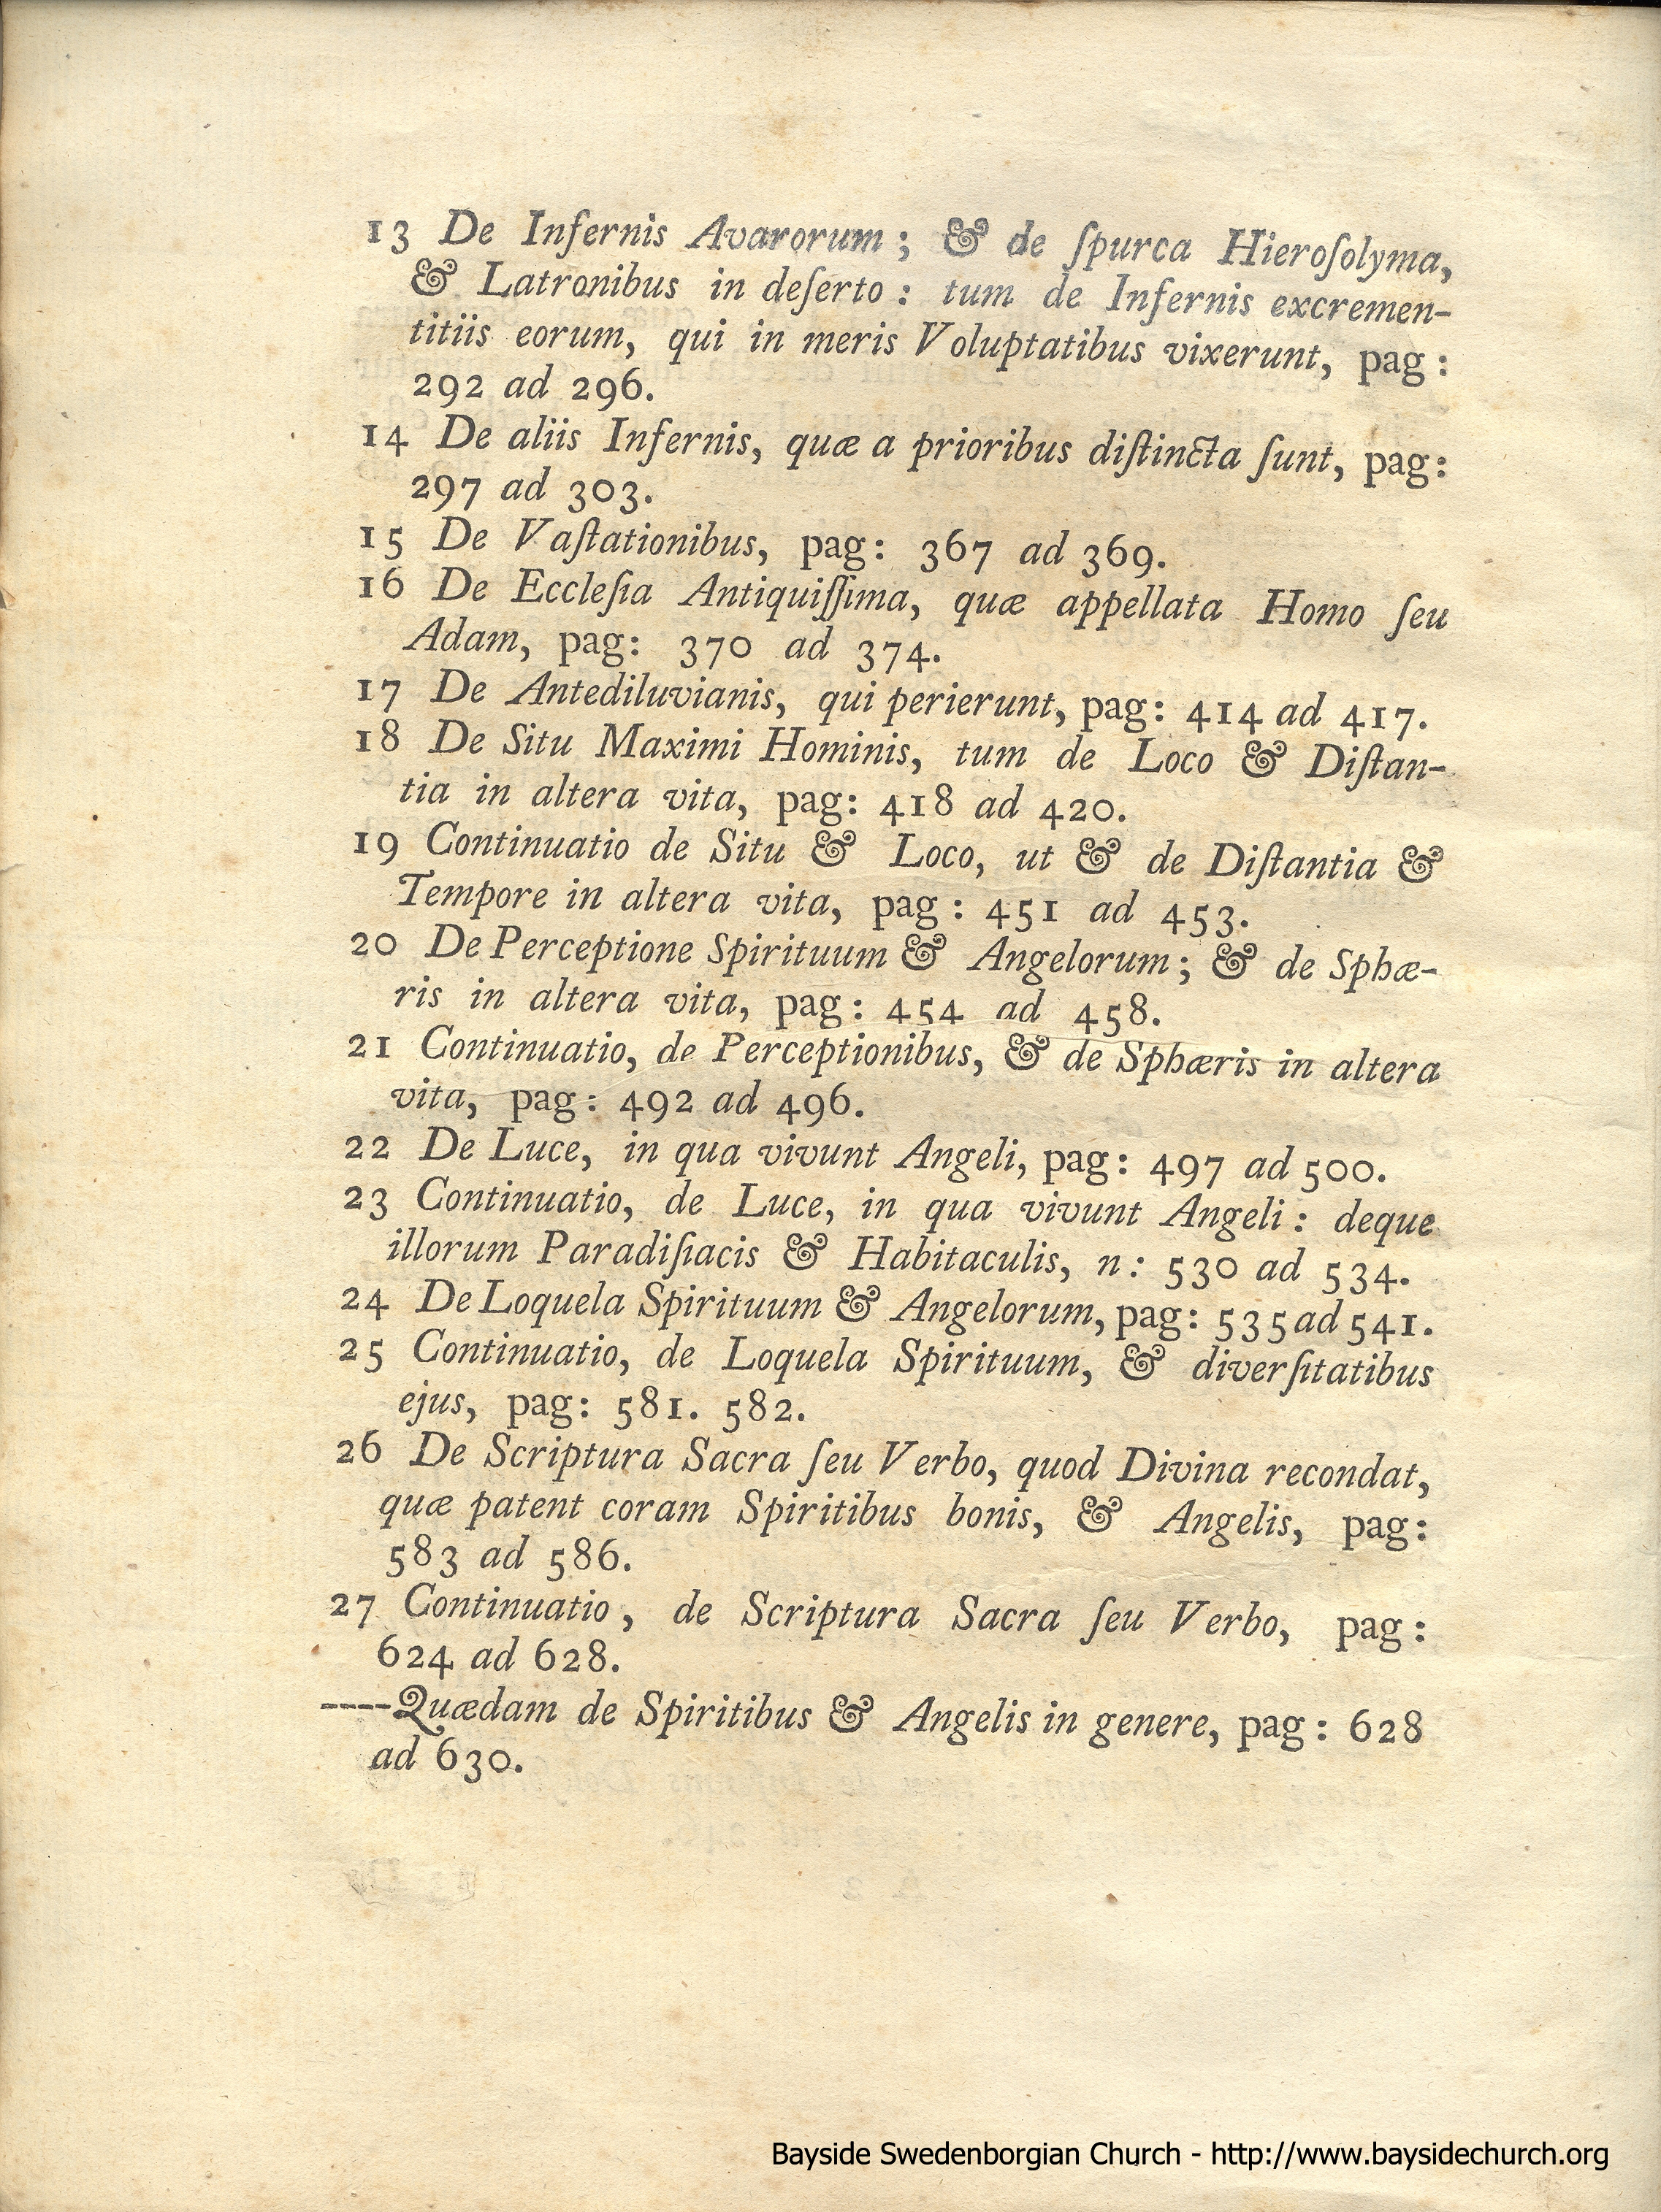 13 De Infernis Avarorum; & de ſpurca Hieroſolyma,
& Latronibus in deſerto: tum de Infernis excremen-
titiis eorum, qui in meris Voluptatibus vixerunt, pag:
292 ad 296.
14 De aliis Infernis, quæ a prioribus diſtincta ſunt, pag:
297 ad 303.
15 De Vaſtationibus, pag: 367 ad 369.
16 De Eccleſia Antiquiſſima, quæ appellata Homo ſeu
Adam, pag: 370 ad 374.
17 De Antediluvianis, qui perierunt, pag: 414 ad 417.
18 De Situ Maximi Hominis, tum de Loco & Diſtan-
tia in altera vita, pag: 418 ad 420.
19 Continuatio de Situ & Loco, ut & de Diſtantia &
Tempore in altera vita, pag: 451 ad 453.
20 De Perceptione Spirituum & Angelorum; & de Sphæ-
ris in altera vita, pag: 454 ad 458.
21 Continuatio, de Perceptionibus, & de Sphæris in altera
vita, pag: 492 ad 496.
22 De Luce, in qua vivunt Angeli, pag: 497 ad 500.
23 Continuatio, de Luce, in qua vivunt Angeli: deque
illorum Paradiſiacis & Habitaculis, n: 530 ad 534.
24 De Loquela Spirituum & Angelorum, pag: 535 ad 541.
25 Continuatio, de Loquela Spirituum, & diverſitatibus
ejus, pag: 581. 582.
26 De Scriptura Sacra ſeu Verbo, quod Divina recondat,
quæ patent coram Spiritibus bonis, & Angelis, pag:
583 ad 586.
27 Continuatio, de Scriptura Sacra ſeu Verbo, pag:
624 ad 628.
----Quædam de Spiritibus & Angelis in genere, pag: 628
ad 630.
Bayside Swedenborgian Church - http://www.baysidechurch.org